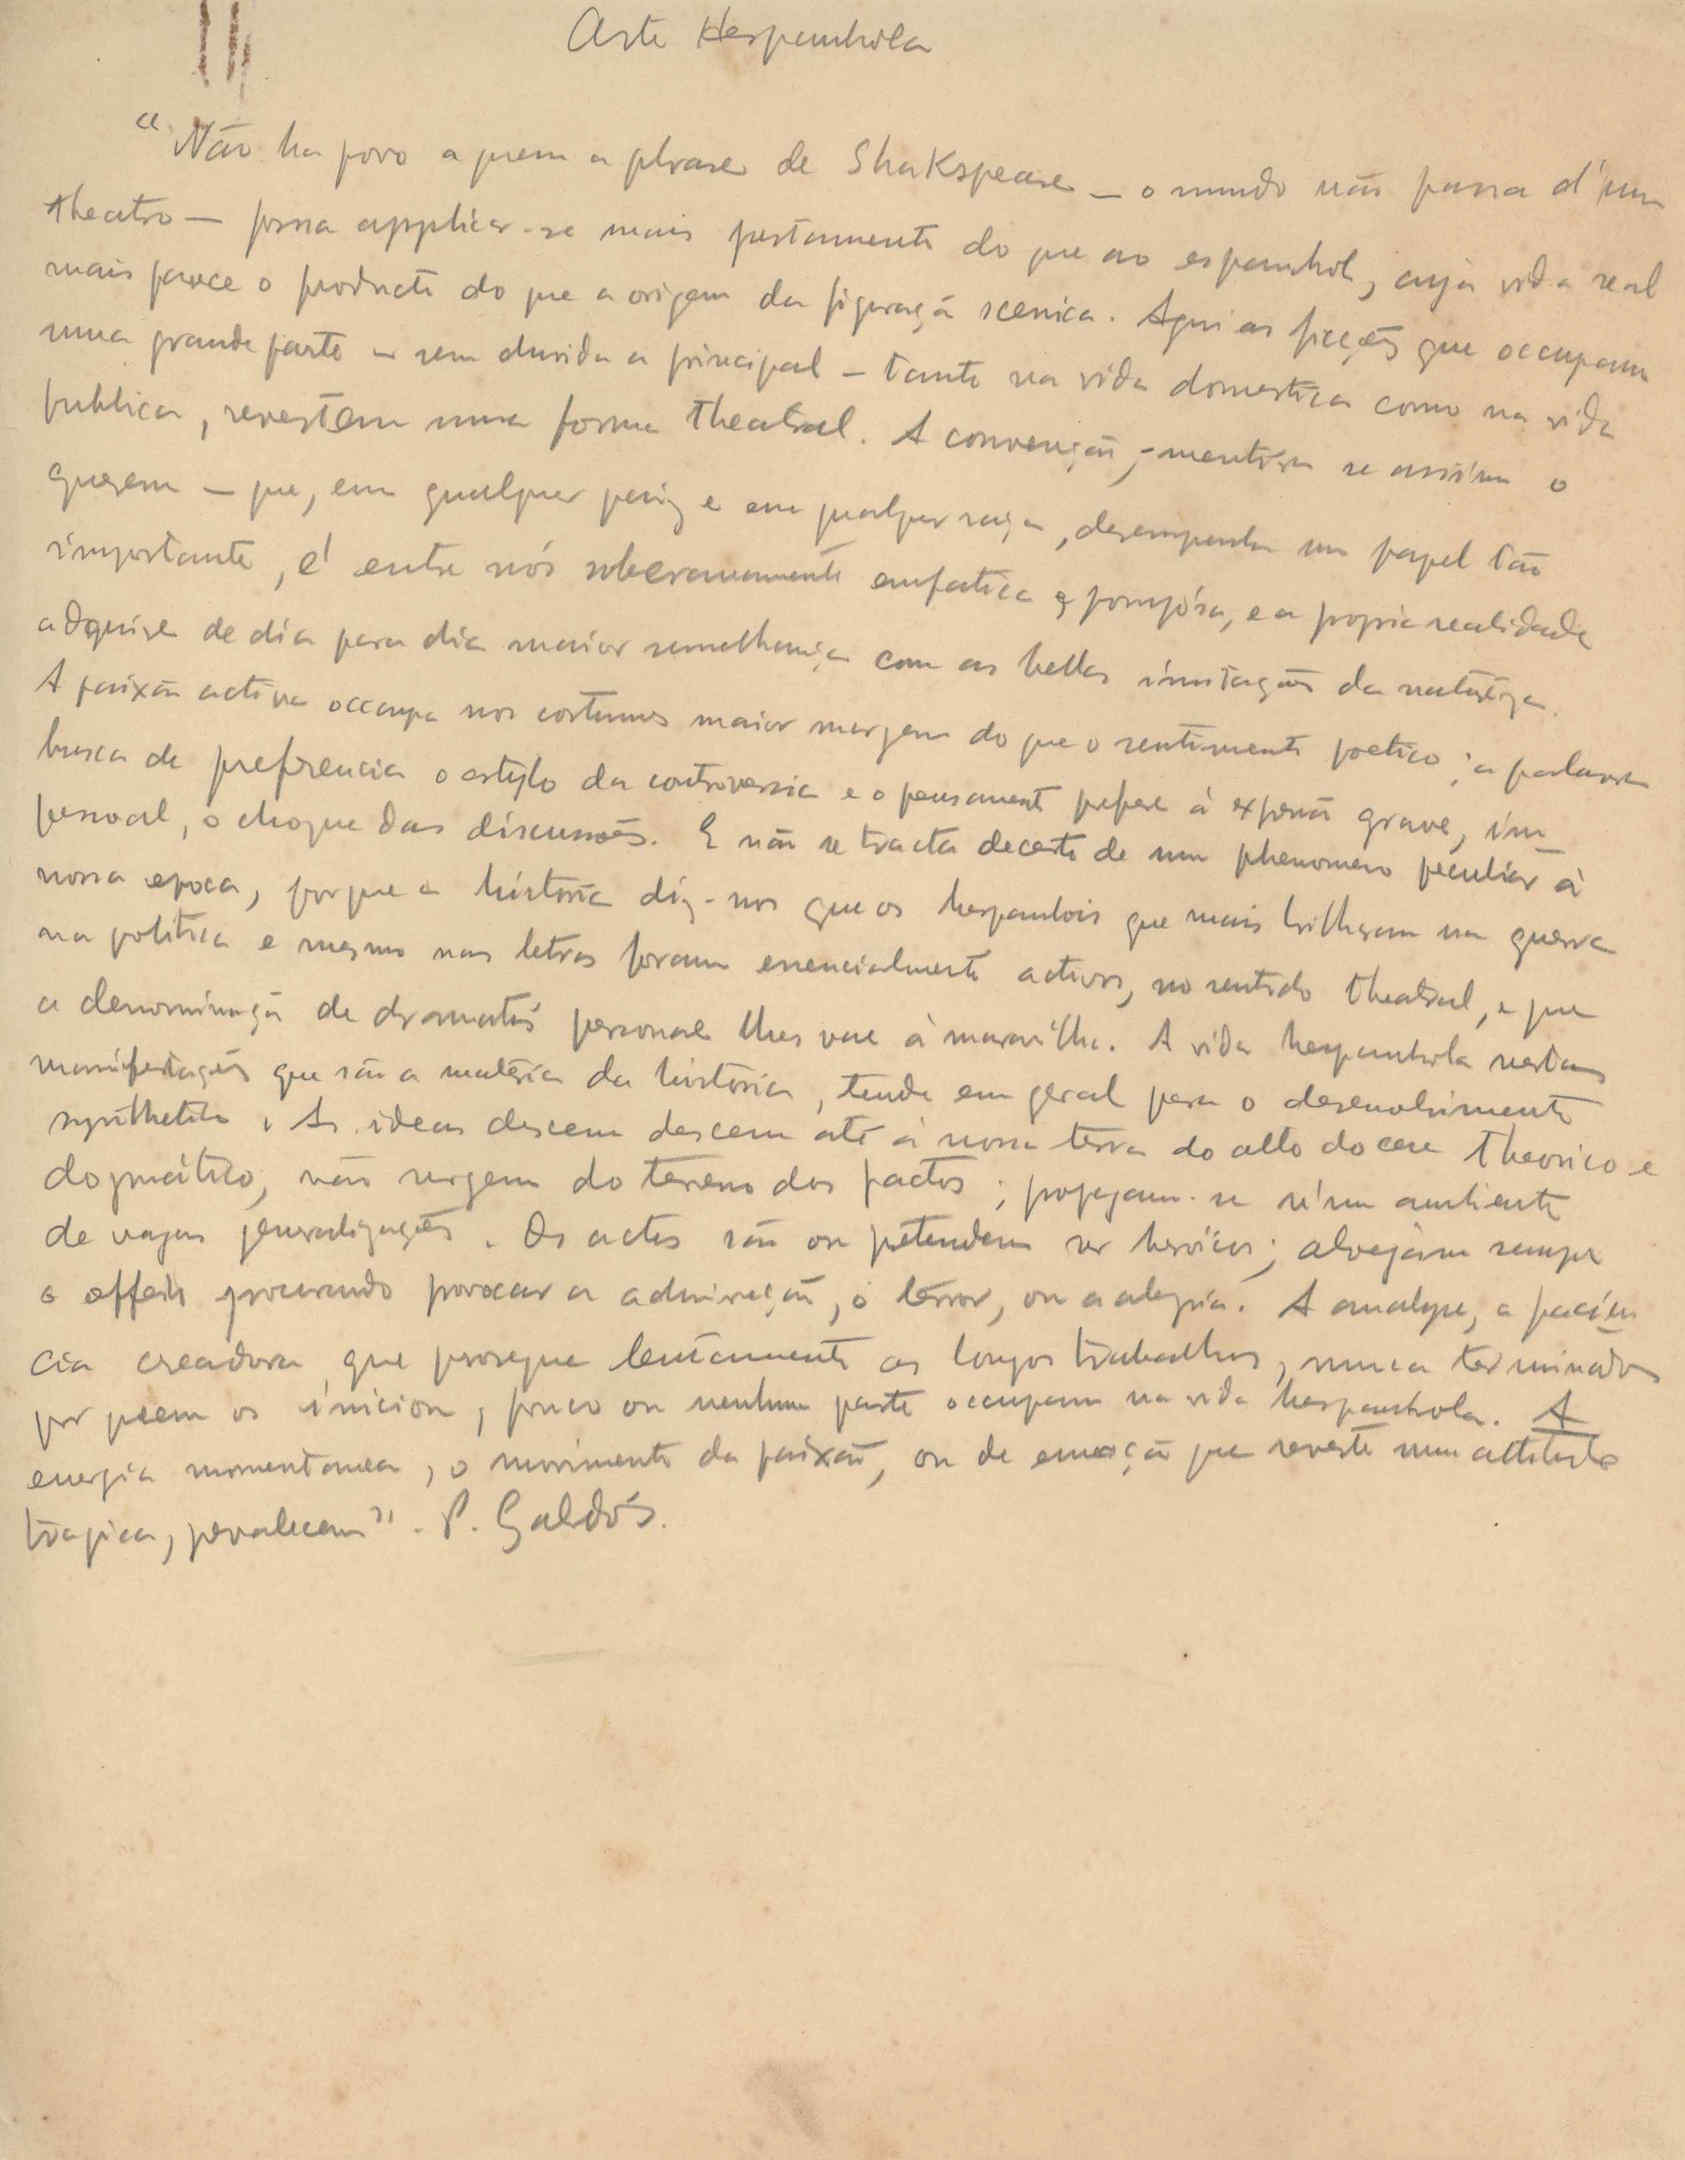 Arte Hespanhola
"Não ha povo a quem a phrase de Shakspeare — o mundo não passa d'um
theatro — possa applicar-se mais justamente do que ao espanhol, cuja vida real
mais parece o producto do que a origem da figuração scenica. Aqui as ficções que occupam
uma grande parte — sem duvida a principal — tanto na vida domestica como na vida
publica, revestem uma forma theatral. A convenção, – mentira se assim o
querem — que, em qualquer paiz e em qualquer raça, desempenha um papel tão
importante, é entre nós soberanamente emfatica e pomposa, e a propria realidade
adquire de dia para dia maior semelhança com as bellas imitações da natureza.
A paixão activa occupa nos costumes maior margem do que o sentimento poetico; a palavra
busca de preferencia o estylo da controversia e o pensamento prefere á exposição grave, im-
pessoal, o choque das discussões. E não se tracta decerto de um phenomeno peculiar á
nossa epoca, porque a historia diz-nos que os hespanhois que mais brilharam na guerra
na politica e mesmo nas letras foram essencialmente activos, no sentido theatral, e que
a denominação de dramatis personae lhes vae á maravilha. A vida hespanhola nestas
manifestações que são a materia da historia, tende em geral para o desenvolvimento
synthetico. As ideas descem descem até á nossa terra do alto do ceu theorico e
dogmático, não surgem do terreno dos factos; propagam-se n'um ambiente
de vagas generalizações. Os actos são ou pretendem ser heroicos; alvejam sempre
o effeito procurando provocar a admiração, o terror, ou a alegria. A analyse, a paciên-
cia creadora que prosegue lentamente os longos trabalhos, nunca terminados
por quem os iniciou, pouco ou nenhuma parte occupam na vida hespanhola. A
energia momentanea, o movimento da paixão, ou de emoção que reveste uma attitude
tragica, prevalecem". P. Galdós.